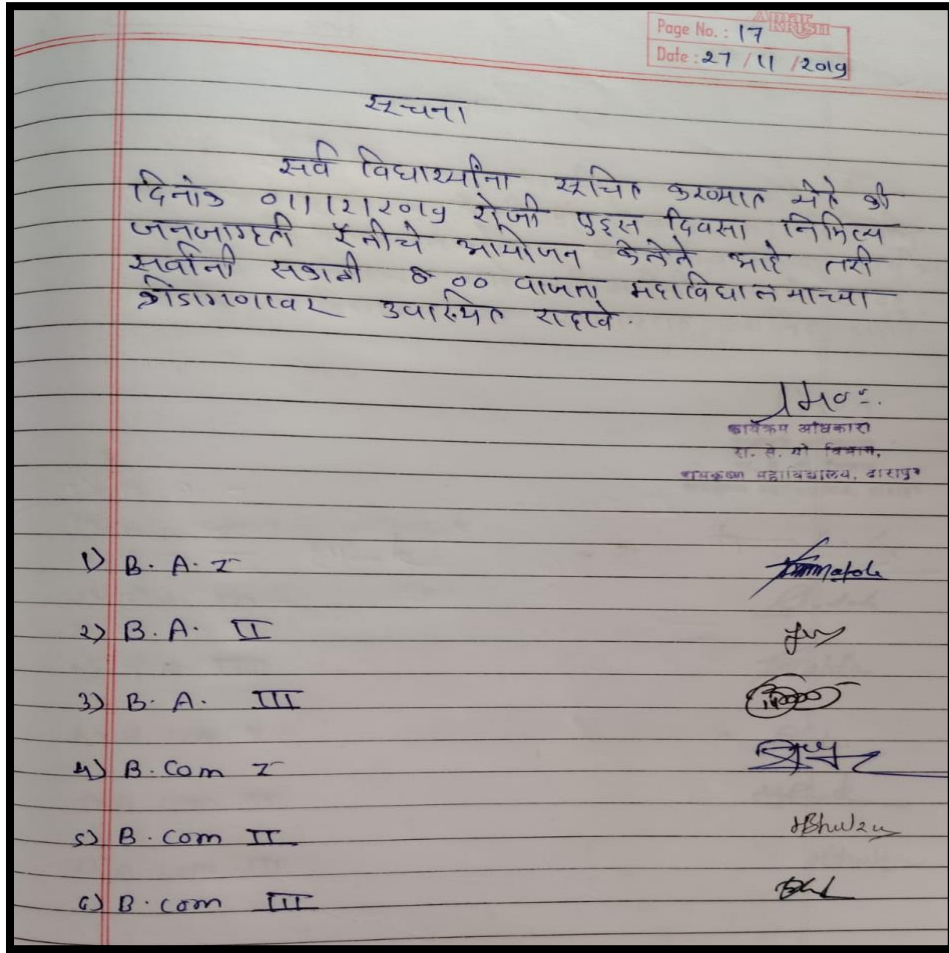 Page No. : 17
Date : 27 / 11 / 2019
सूचना
सर्व विद्यार्थ्यांना सूचित करण्यात येते की
दिनांक 01/12/2019 रोजी एड्स दिवसा निमित्य
जनजागृती रॅलीचे आयोजन केलेले आहे तरी
सर्वांनी सकाळी 8 00 वाजता महाविद्यालयाच्या
क्रीडांगणावर उपस्थित राहावे.
कार्यक्रम अधिकारी
रा. से. यो विभाग,
महाविद्यालय, दारापुर
1) B. A. I
2) B. A. II
3) B. A. III
4) B. Com I
5) B. com II
6) B. com III